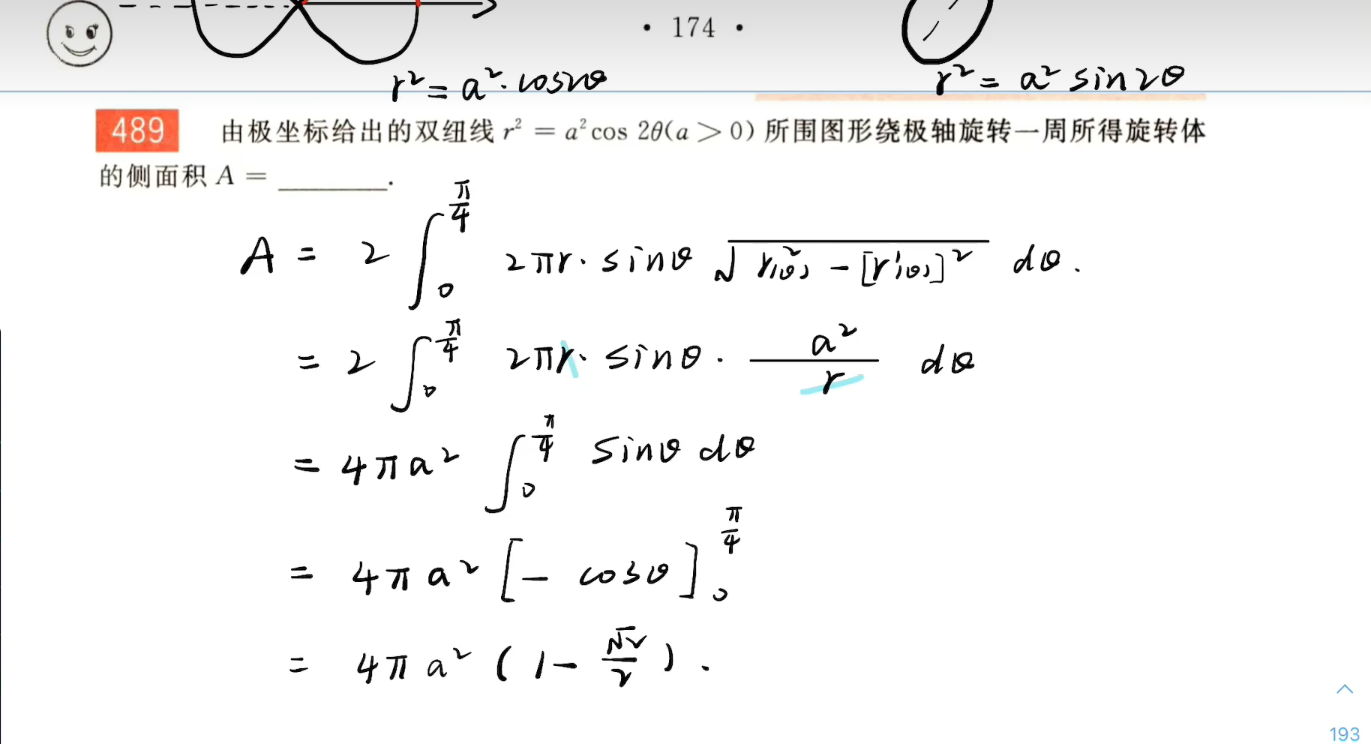 · 174 ·
r² = a²·cos2θ
r² = a² sin2θ
489 由极坐标给出的双纽线 r² = a² cos 2θ(a > 0) 所围图形绕极轴旋转一周所得旋转体
的侧面积 A = ______.
A = 2 ∫₀^{π/4} 2πr· sinθ √(r²(θ) - [r'(θ)]²) dθ.
= 2 ∫₀^{π/4} 2πr· sinθ · a²/r dθ
= 4πa² ∫₀^{π/4} sinθ dθ
= 4πa² [- cosθ]₀^{π/4}
= 4πa² (1 - √2/2).
193